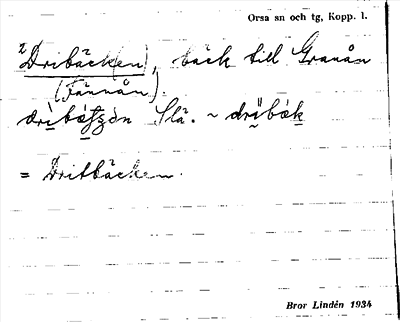 Orsa sn och tg, Kopp. l.
2 Dribäcken), bäck till Granån
(Fännån).
Slä. ~
= Dritbäcken.
Bror Lindén 1934